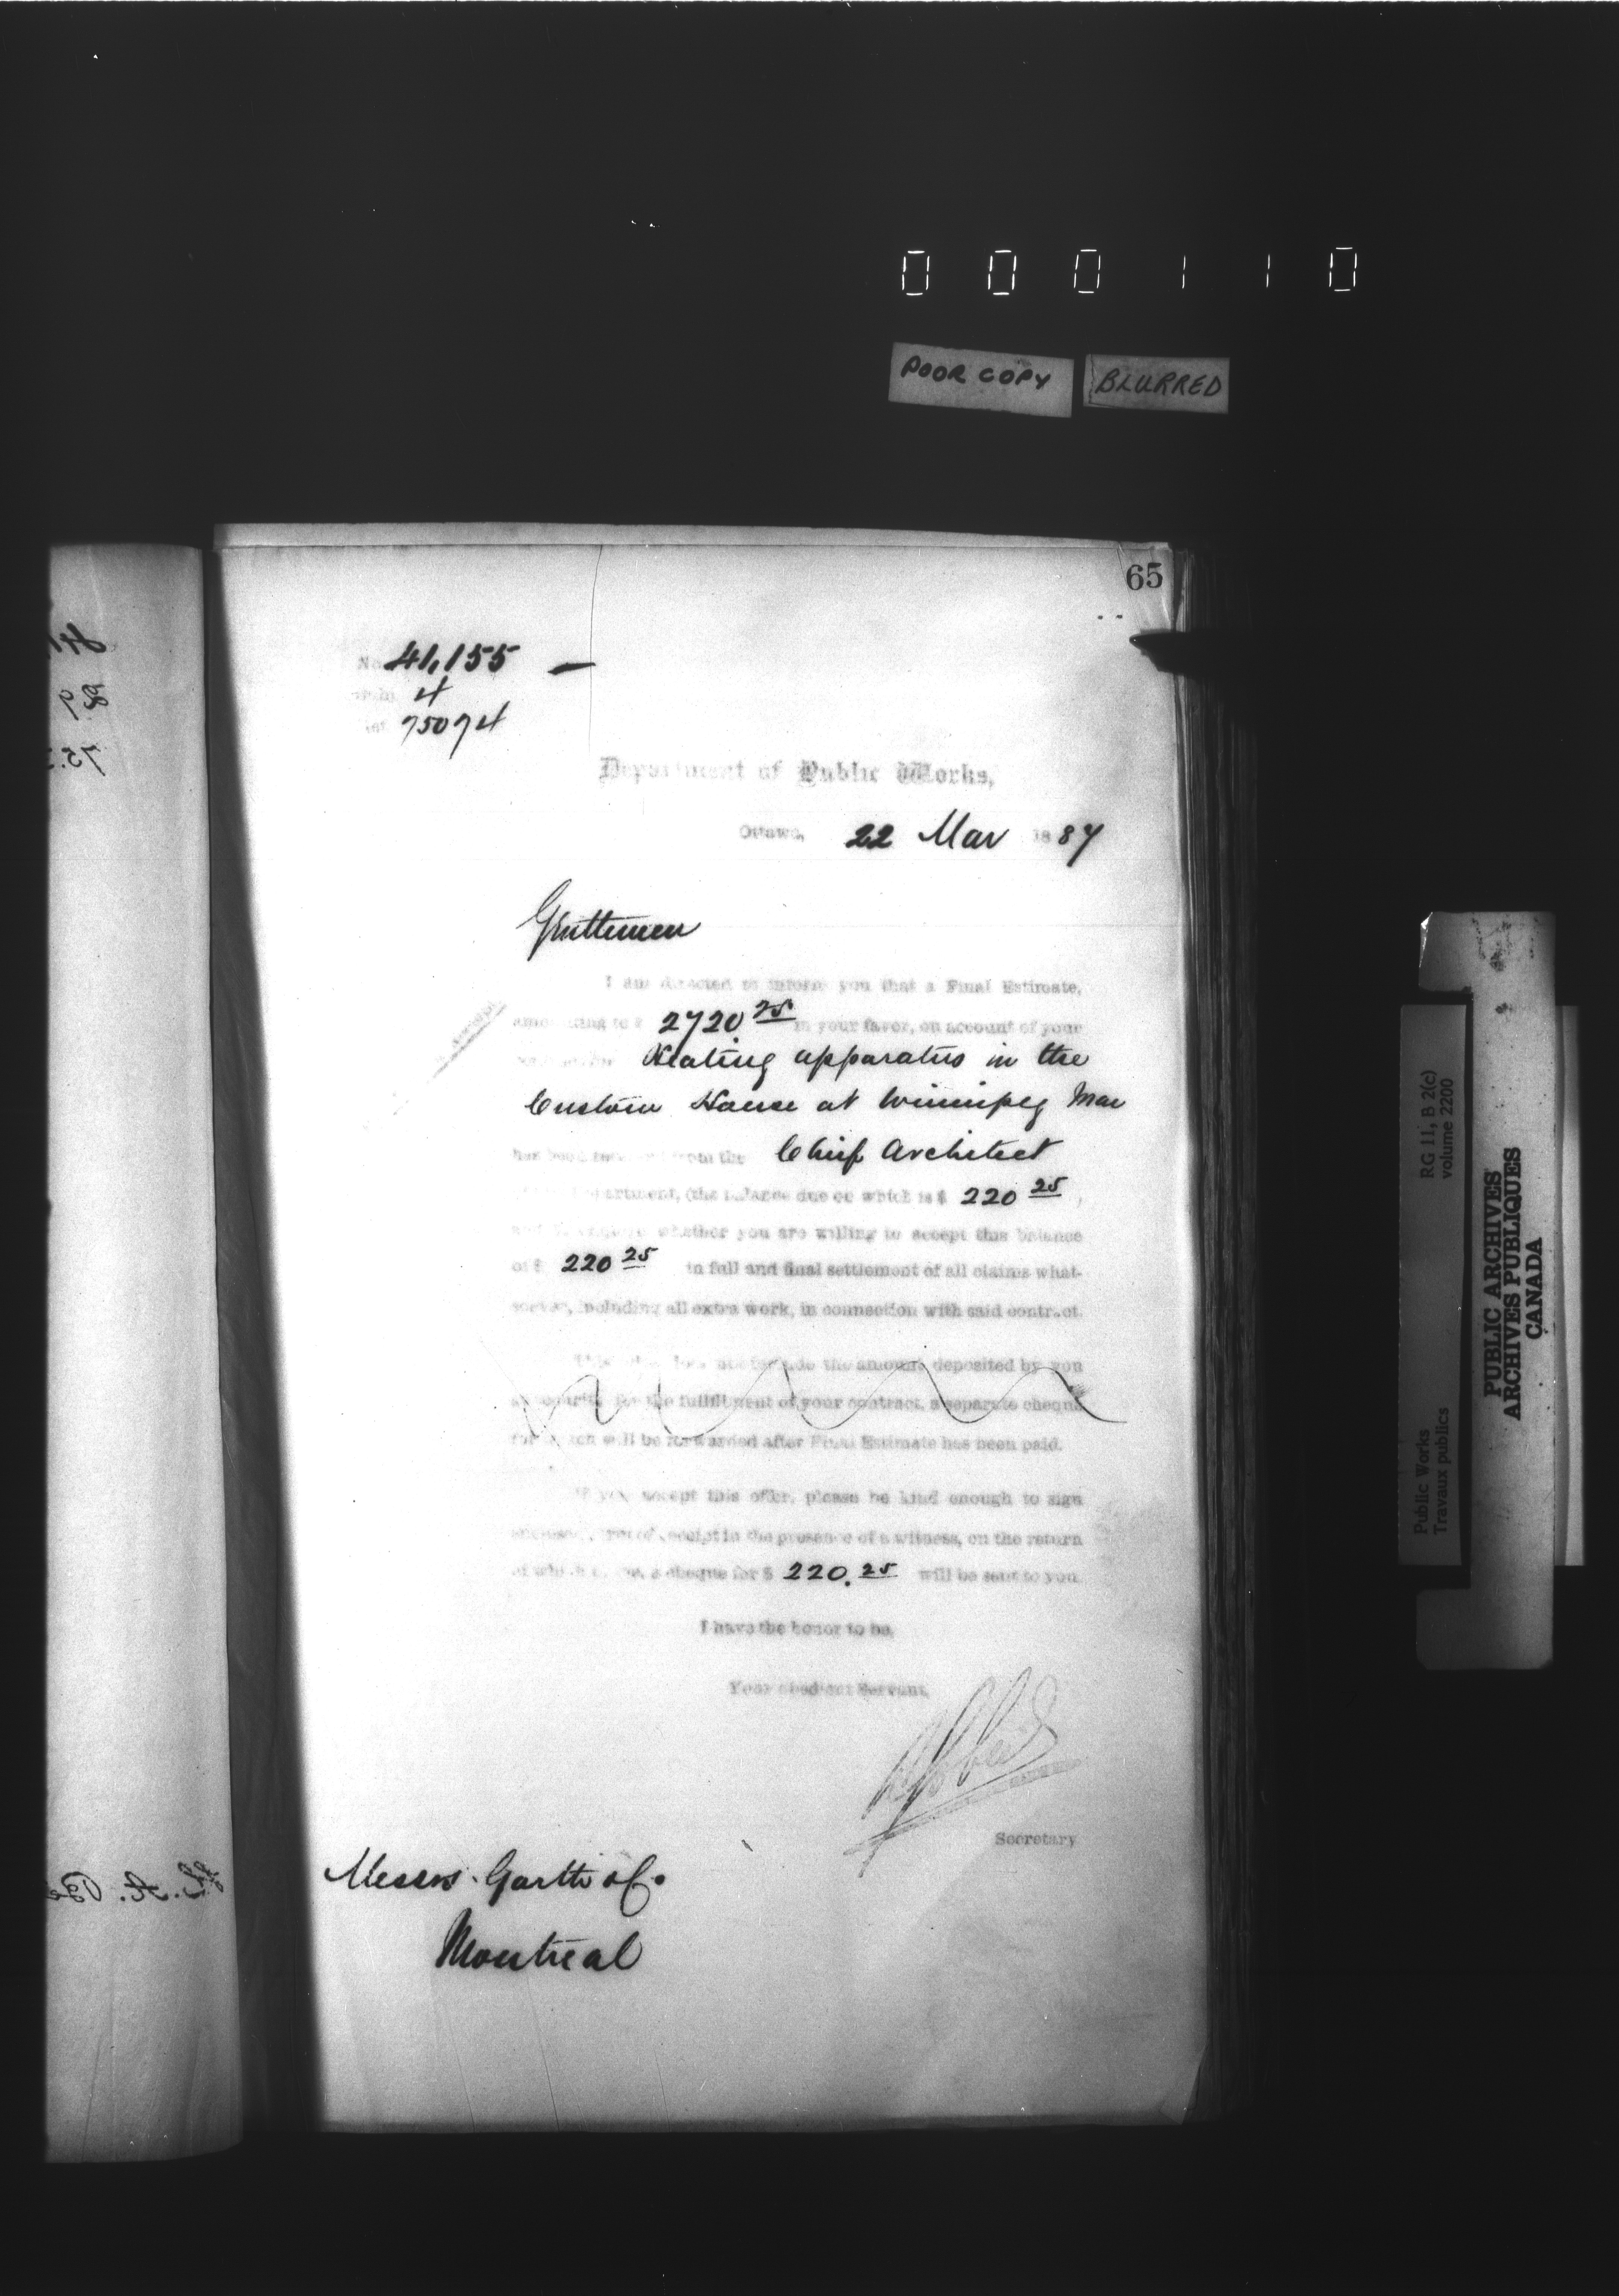 0 0 0 1 1 0
POOR COPY BLURRED
65
No 41,155 —
4
75074
Department of Public Works,
Ottawa, 22 Mar 1887
Gentlemen
I am directed to inform you that a Final Estimate,
amounting to $ 2720 25 in your favor, on account of your
Heating apparatus in the
Custom House at Winnipeg Man
has been received from the Chief Architect
Department, (the balance due on which is $ 220 25,
and to enquire whether you are willing to accept this balance
of $ 220 25 in full and final settlement of all claims what-
soever, including all extra work, in connection with said contract.
This does not include the amount deposited by you
as security for the fulfilment of your contract, a separate cheque
for which will be forwarded after Final Estimate has been paid.
If you accept this offer, please be kind enough to sign
enclosed form of receipt in the presence of a witness, on the return
of which to me, a cheque for $ 220.25 will be sent to you.
I have the honor to be,
Your obedient Servant,
Secretary
Messrs. Garth & Co.
Montreal
RG 11, B 2(c)
volume 2200
Public Works
Travaux publics
PUBLIC ARCHIVES
ARCHIVES PUBLIQUES
CANADA